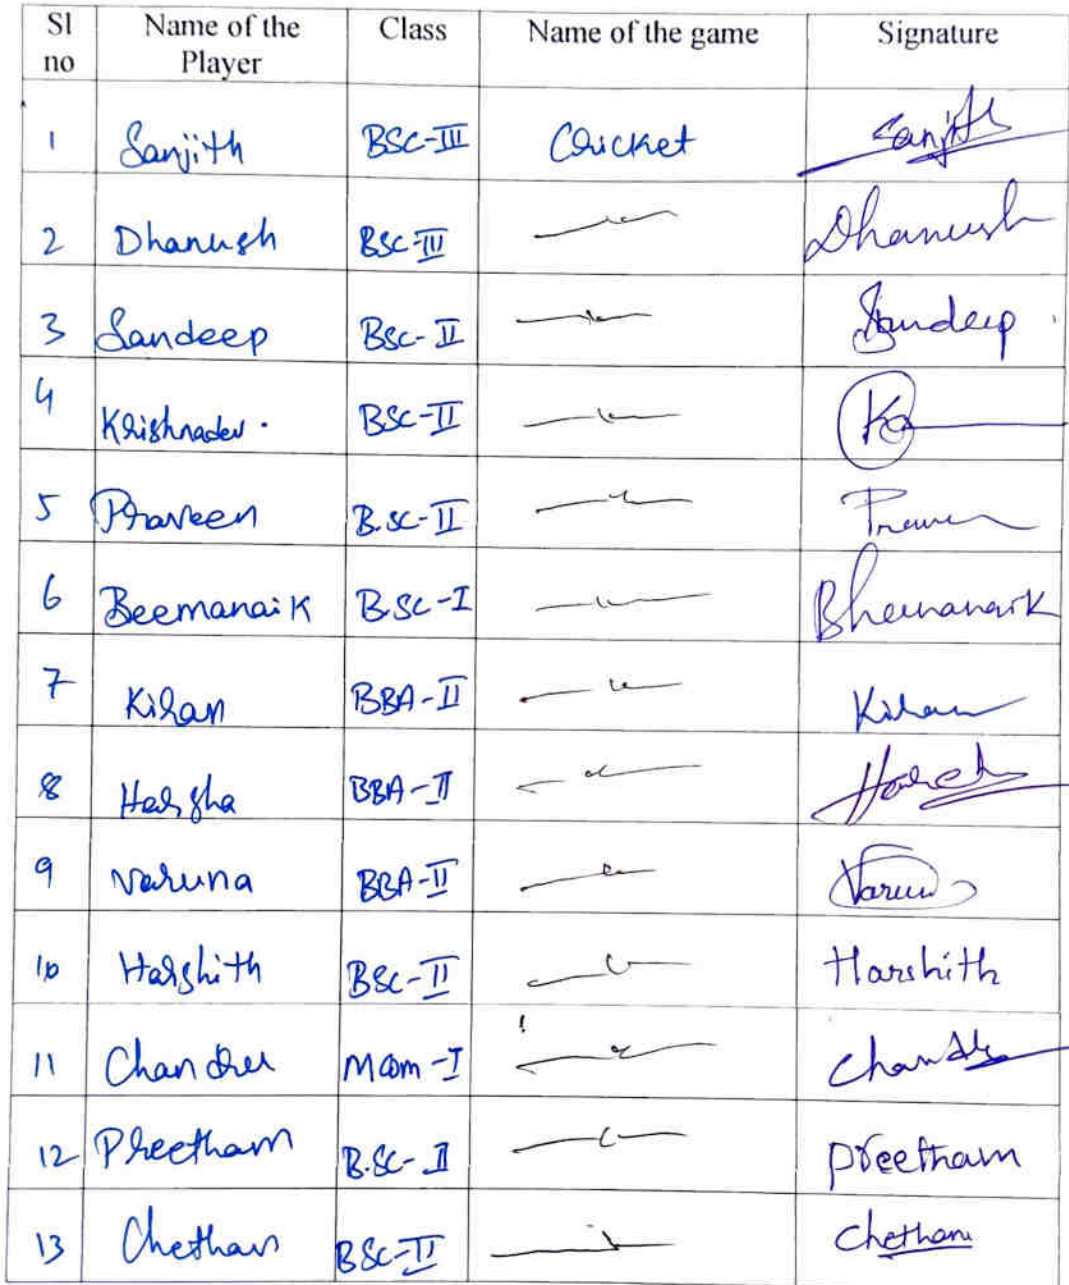 Sl no Name of the Player Class Name of the game Signature
1 Sanjith BSC-III Cricket Sanjith
2 Dhanush BSC-III Dhanush
3 Sandeep BSC-II Sandeep
4 Krishnadev. BSC-II
5 Praveen B.SC-II
6 Beemanaik B.SC-I Bheemanaik
7 Kiran BBA-II Kiran
8 Harsha BBA-II
9 Varuna BBA-II Varun
10 Harshith BSC-II Harshith
11 Chandru Mcom-I
12 Preetham B.SC-II Preetham
13 Chethan BSC-II Chethan